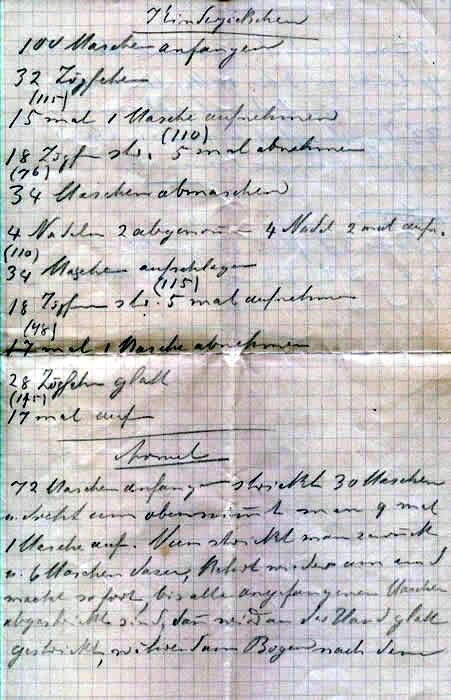 Kinderjäckchen
100 Maschen anfangen
32 Zöpfchen
(115)
15 mal 1 Masche aufnehmen
(110)
18 Zöpfen str. 5 mal abnehmen
(76)
34 Maschen abmaschen
4 Nadeln 2 abgenom 4 Nadel 2 mal aufn.
(110)
34 Maschen aufschlagen
(115)
18 Zöpfen str. 5 mal aufnehmen
(98)
17 mal 1 Masche abnehmen
28 Zöpfchen glatt
(115)
17 mal auf
Ärmel
72 Maschen anfangen strickt 30 Maschen
u. dreht um oben nimmt man 9 mal
1 Masche auf. Nun strickt man zurück
u. 6 Maschen dazu, kehrt wieder um und
macht so fort, bis alle angefangenen Maschen
abgestrickt sind, dan wird an der Hand glatt
gestrickt, während am Bogen nach dem